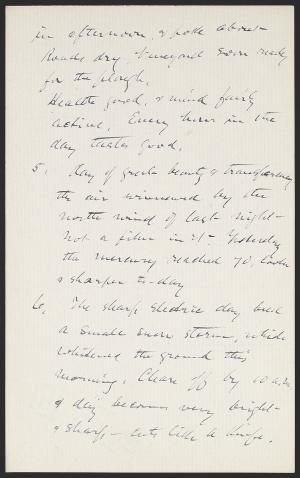 in afternoon, & poke about.
Roads dry. Vineyard soon ready
for the plough.
Health good, & mind fairly
active. Every hour in the
day tastes good.
5, Day of great beauty & transparency
the air winnowed by the
north wind of last night-
not a film in it. Yesterday
the mercury reached 70, cooler
& sharper to-day
6, The sharp electric day bred
a small snow storm, which
whitened the ground this
morning. Clears off by 10 a.m.
& day becomes very bright
& sharp - cuts like a knife.